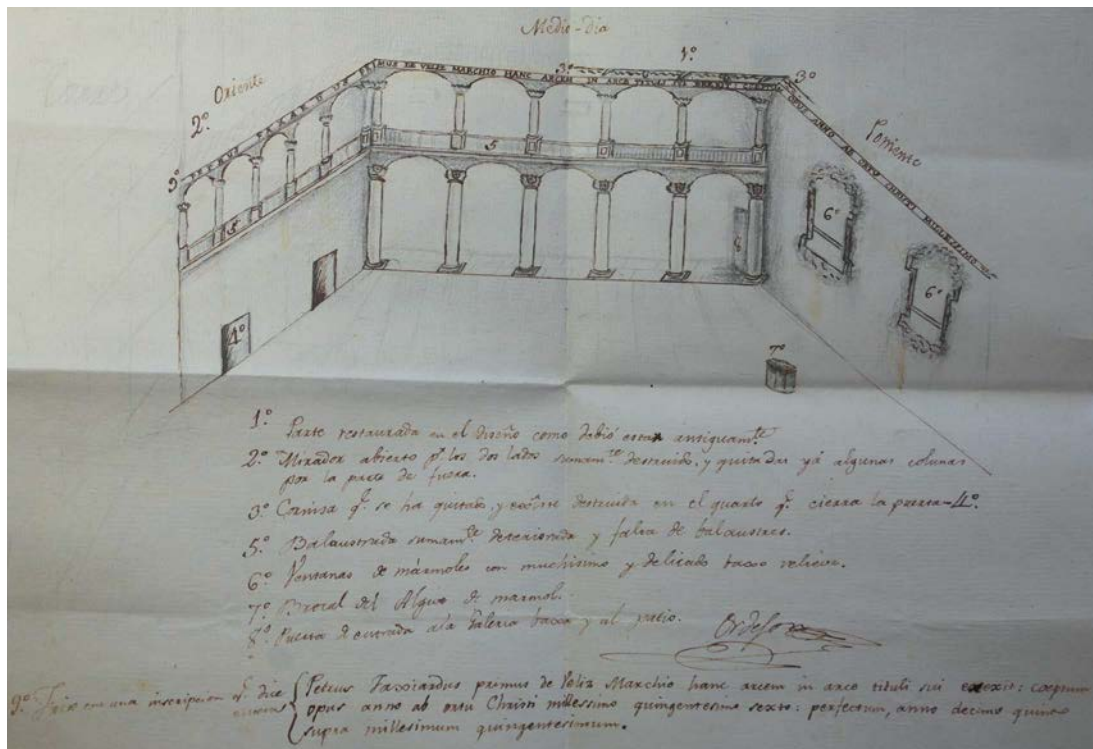 Medio-dia
1º
3º
3º
Oriente
2º
Poniente
PETRUS FAXARDUS PRIMUS DE VELIZ MARCHIO HANC ARCEM IN ARCE TITULI SUI EREXIT: COEPTUM OPUS ANNO AB ORTU CHRISTI MILLESSIMO
9º
5
5
6
6º
6º
4º
7º
1º Parte restaurada en el diseño como debió estar antiguamte
2º Mirador abierto pr los dos lados sumamte destruido, y quitadas yá algunas colunas
por la parte de fuera.
3º Cornisa q. se ha quitado, y existe destruida en el quarto q. cierra la puerta-4º.
5º Balaustrada sumamte deteriorada y falta de balaustres.
6º Ventanas de mármoles con muchisimo y delicado baxo relieve.
7º Brocal del Algive de marmol.
8º Puerta de entrada ala Galeria baxa y al patio.
9º Friso con una inscripcion q. dice
Petrus Faxiardus primus de Veliz Marchio hanc arcem in arce tituli sui erexit: coeptum
opus anno ab ortu Christi millessimo quingentesimo sexto: perfectum, anno decimo quinto
supra millesimum quingentesimum.